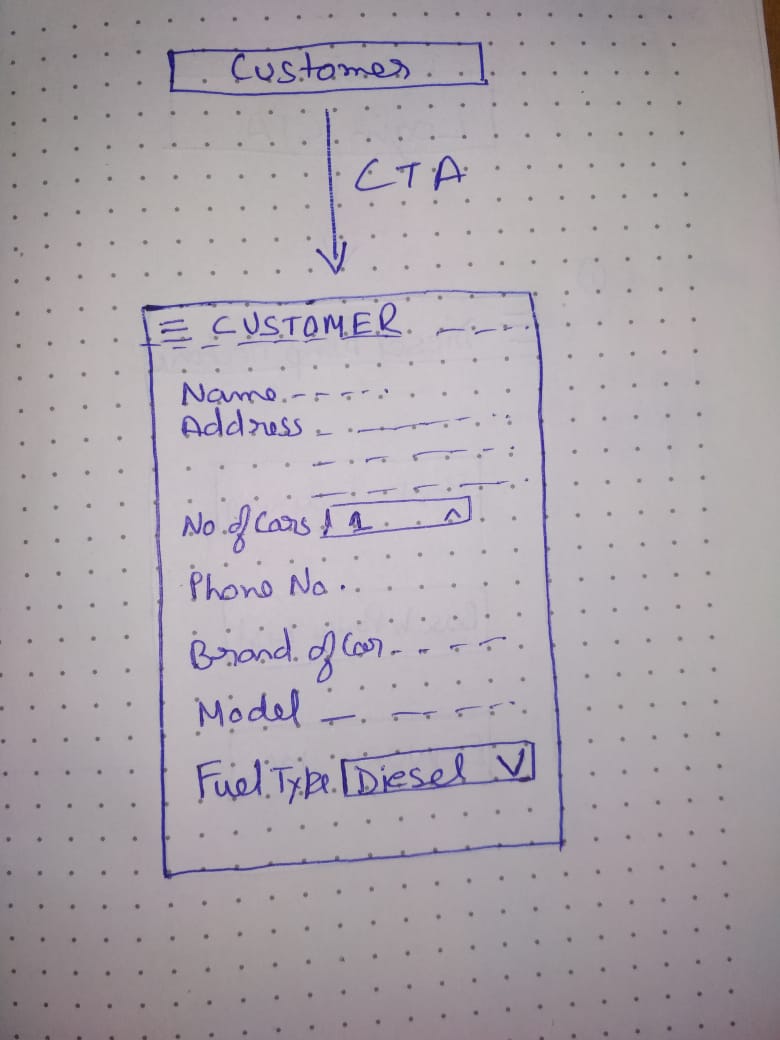 Customer
CTA
CUSTOMER
Name
Address
No. of Cars 1
Phone No.
Brand of Car
Model
Fuel Type Diesel